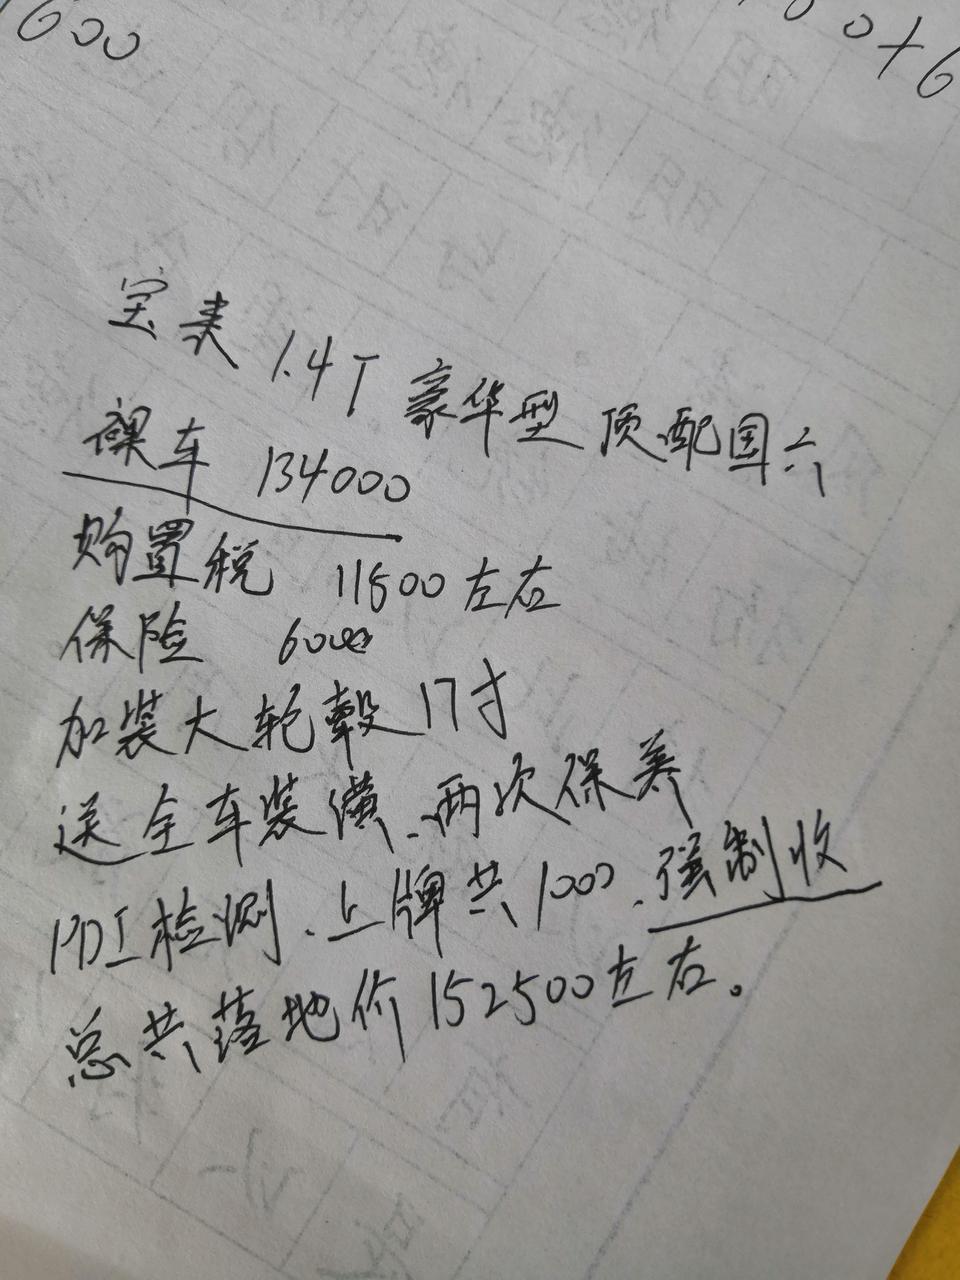 600
00+6
宝来 1.4T 豪华型 顶配国六
裸车 134000
购置税 11500左右
保险 6000
加装大轮毂17寸
送全车装潢、两次保养
PDI检测、上牌共1000、强制收
总共落地价152500左右。